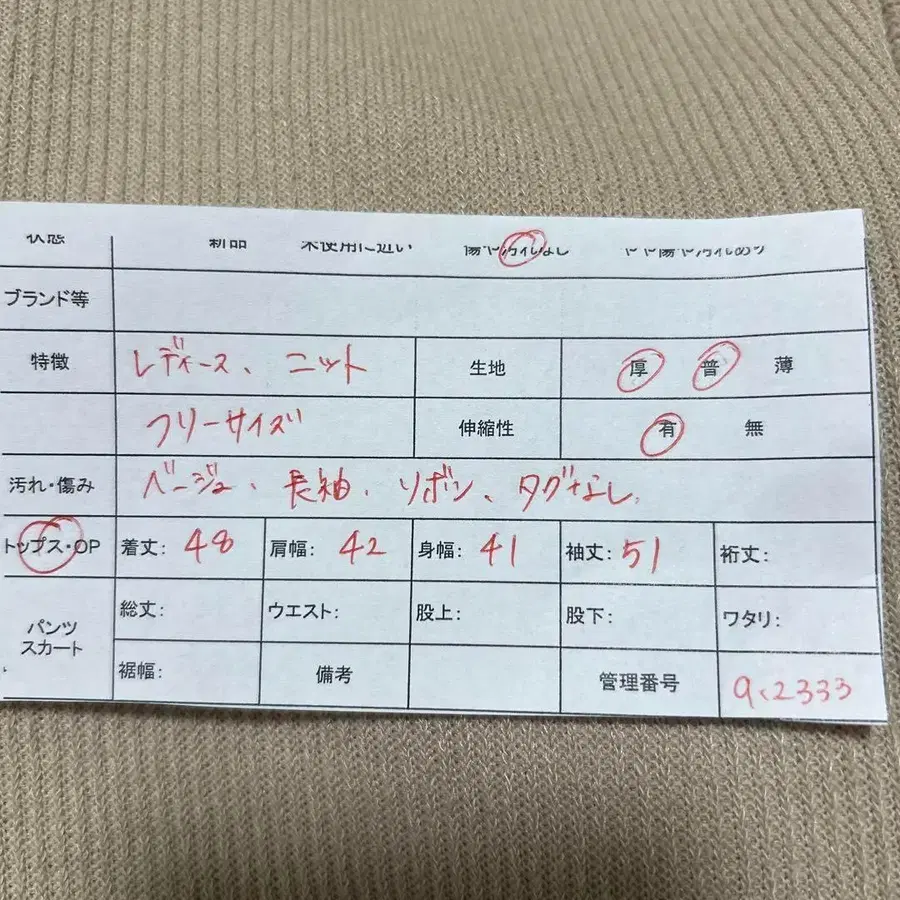 状態 新品 未使用に近い 傷や汚れなし やや傷や汚れあり
ブランド等
特徴 レディース、ニット 生地 厚 普 薄
フリーサイズ 伸縮性 有 無
汚れ・傷み ベージュ、長袖、リボン、タグなし、
トップス・OP 着丈: 48 肩幅: 42 身幅: 41 袖丈: 51 裄丈:
パンツ 総丈: ウエスト: 股上: 股下: ワタリ:
スカート
裾幅: 備考 管理番号 9く2333